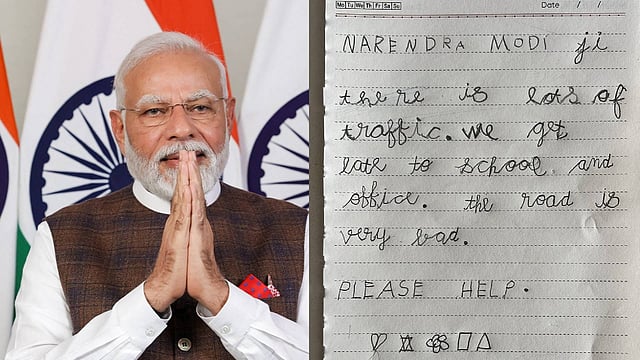 Mo Tu We Th Fr Sa Su Date / /
NARENDRA MODI ji
there is lots of
traffic. we get
late to school and
office. the road is
very bad.
PLEASE HELP.